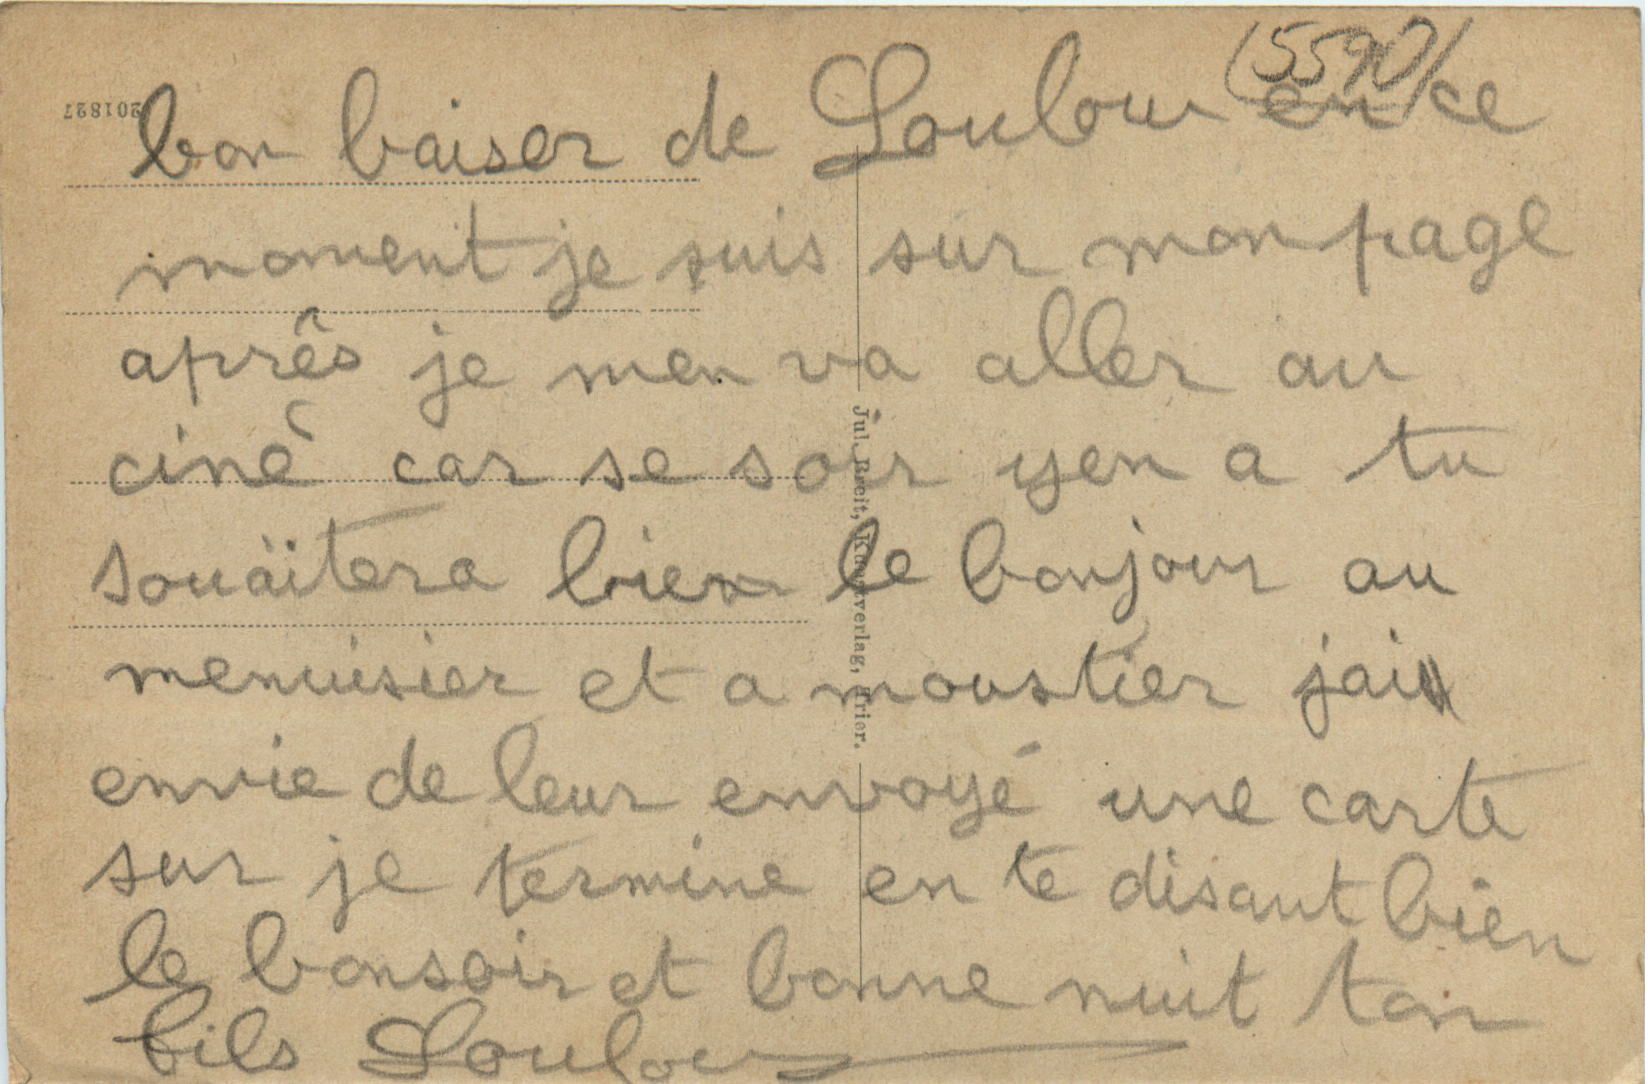 (5590)
201827
bon baiser de Loulou en ce
moment je suis sur mon page
après je men va aller au
ciné car se soir yen a tu
souäitera bien le bonjour au
menuisier et a moustier jai
envie de leur envoyé une carte
sur je termine en te disant bien
le bonsoir et bonne nuit ton
fils Loulou
Jul. Breit, Kunstverlag, Trier.